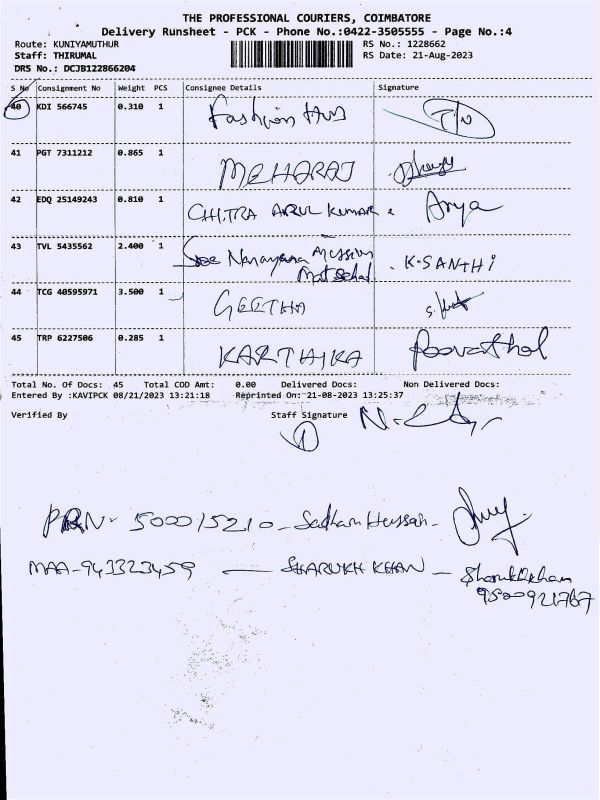 THE PROFESSIONAL COURIERS, COIMBATORE
Delivery Runsheet - PCK - Phone No.:0422-3505555 - Page No.:4
Route: KUNIYAMUTHUR RS No.: 1228662
Staff: THIRUMAL RS Date: 21-Aug-2023
DRS No.: DCJB122866204
S No Consignment No Weight PCS Consignee Details Signature
40 KDI 566745 0.310 1 Fashion Hub
41 PGT 7311212 0.865 1 MEHARAJ
42 EDQ 25149243 0.810 1 CHITRA ARUL KUMAR Arya
43 TVL 5435562 2.400 1 Sree Narayana Mission Mat School K.SANTHI
44 TCG 40595971 3.500 1 GEETHA
45 TRP 6227506 0.285 1 KARTHIKA Poovathal
Total No. Of Docs: 45 Total COD Amt: 0.00 Delivered Docs: Non Delivered Docs:
Entered By :KAVIPCK 08/21/2023 13:21:18 Reprinted On: 21-08-2023 13:25:37
Verified By Staff Signature
PRN - 500015210 - Sadham Hussah -
MAA-943323459 — SHARUKH KHAN — Sharukhkhan
9500921767